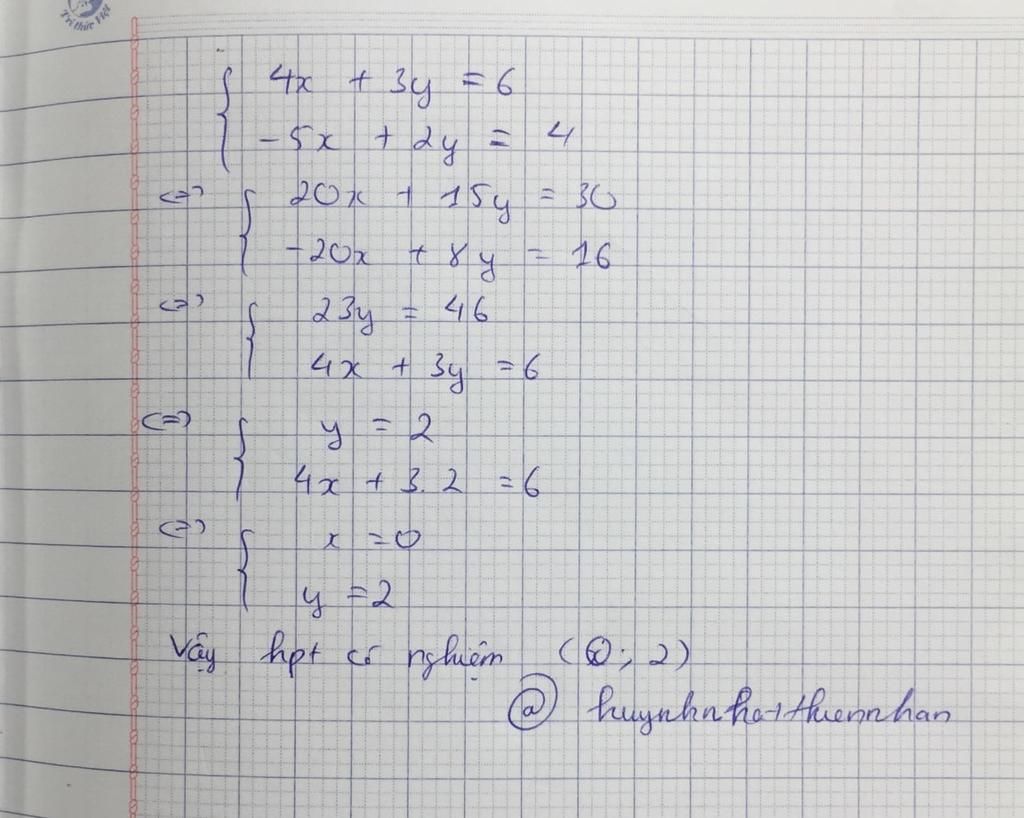 Trí thức Việt
4x + 3y = 6
-5x + 2y = 4
<=> 20x + 15y = 30
-20x + 8y = 16
<=> 23y = 46
4x + 3y = 6
<=> y = 2
4x + 3.2 = 6
<=> x = 0
y = 2
Vậy hpt có nghiệm (0; 2)